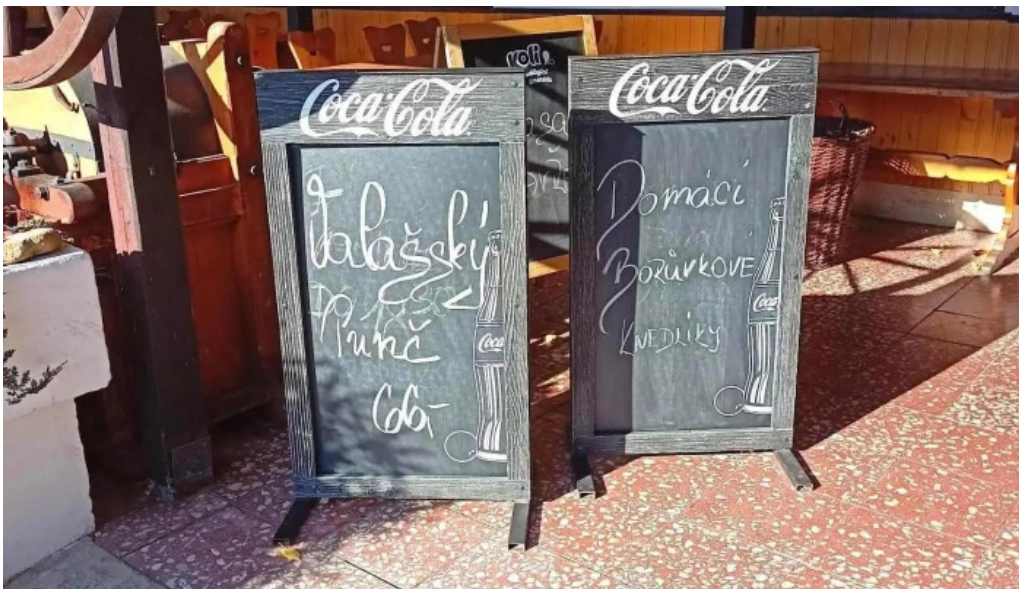 Coca-Cola
Valašský
Punč
60,-
Coca
Coca-Cola
Domácí
Borůvkové
Knedlíky
Coca